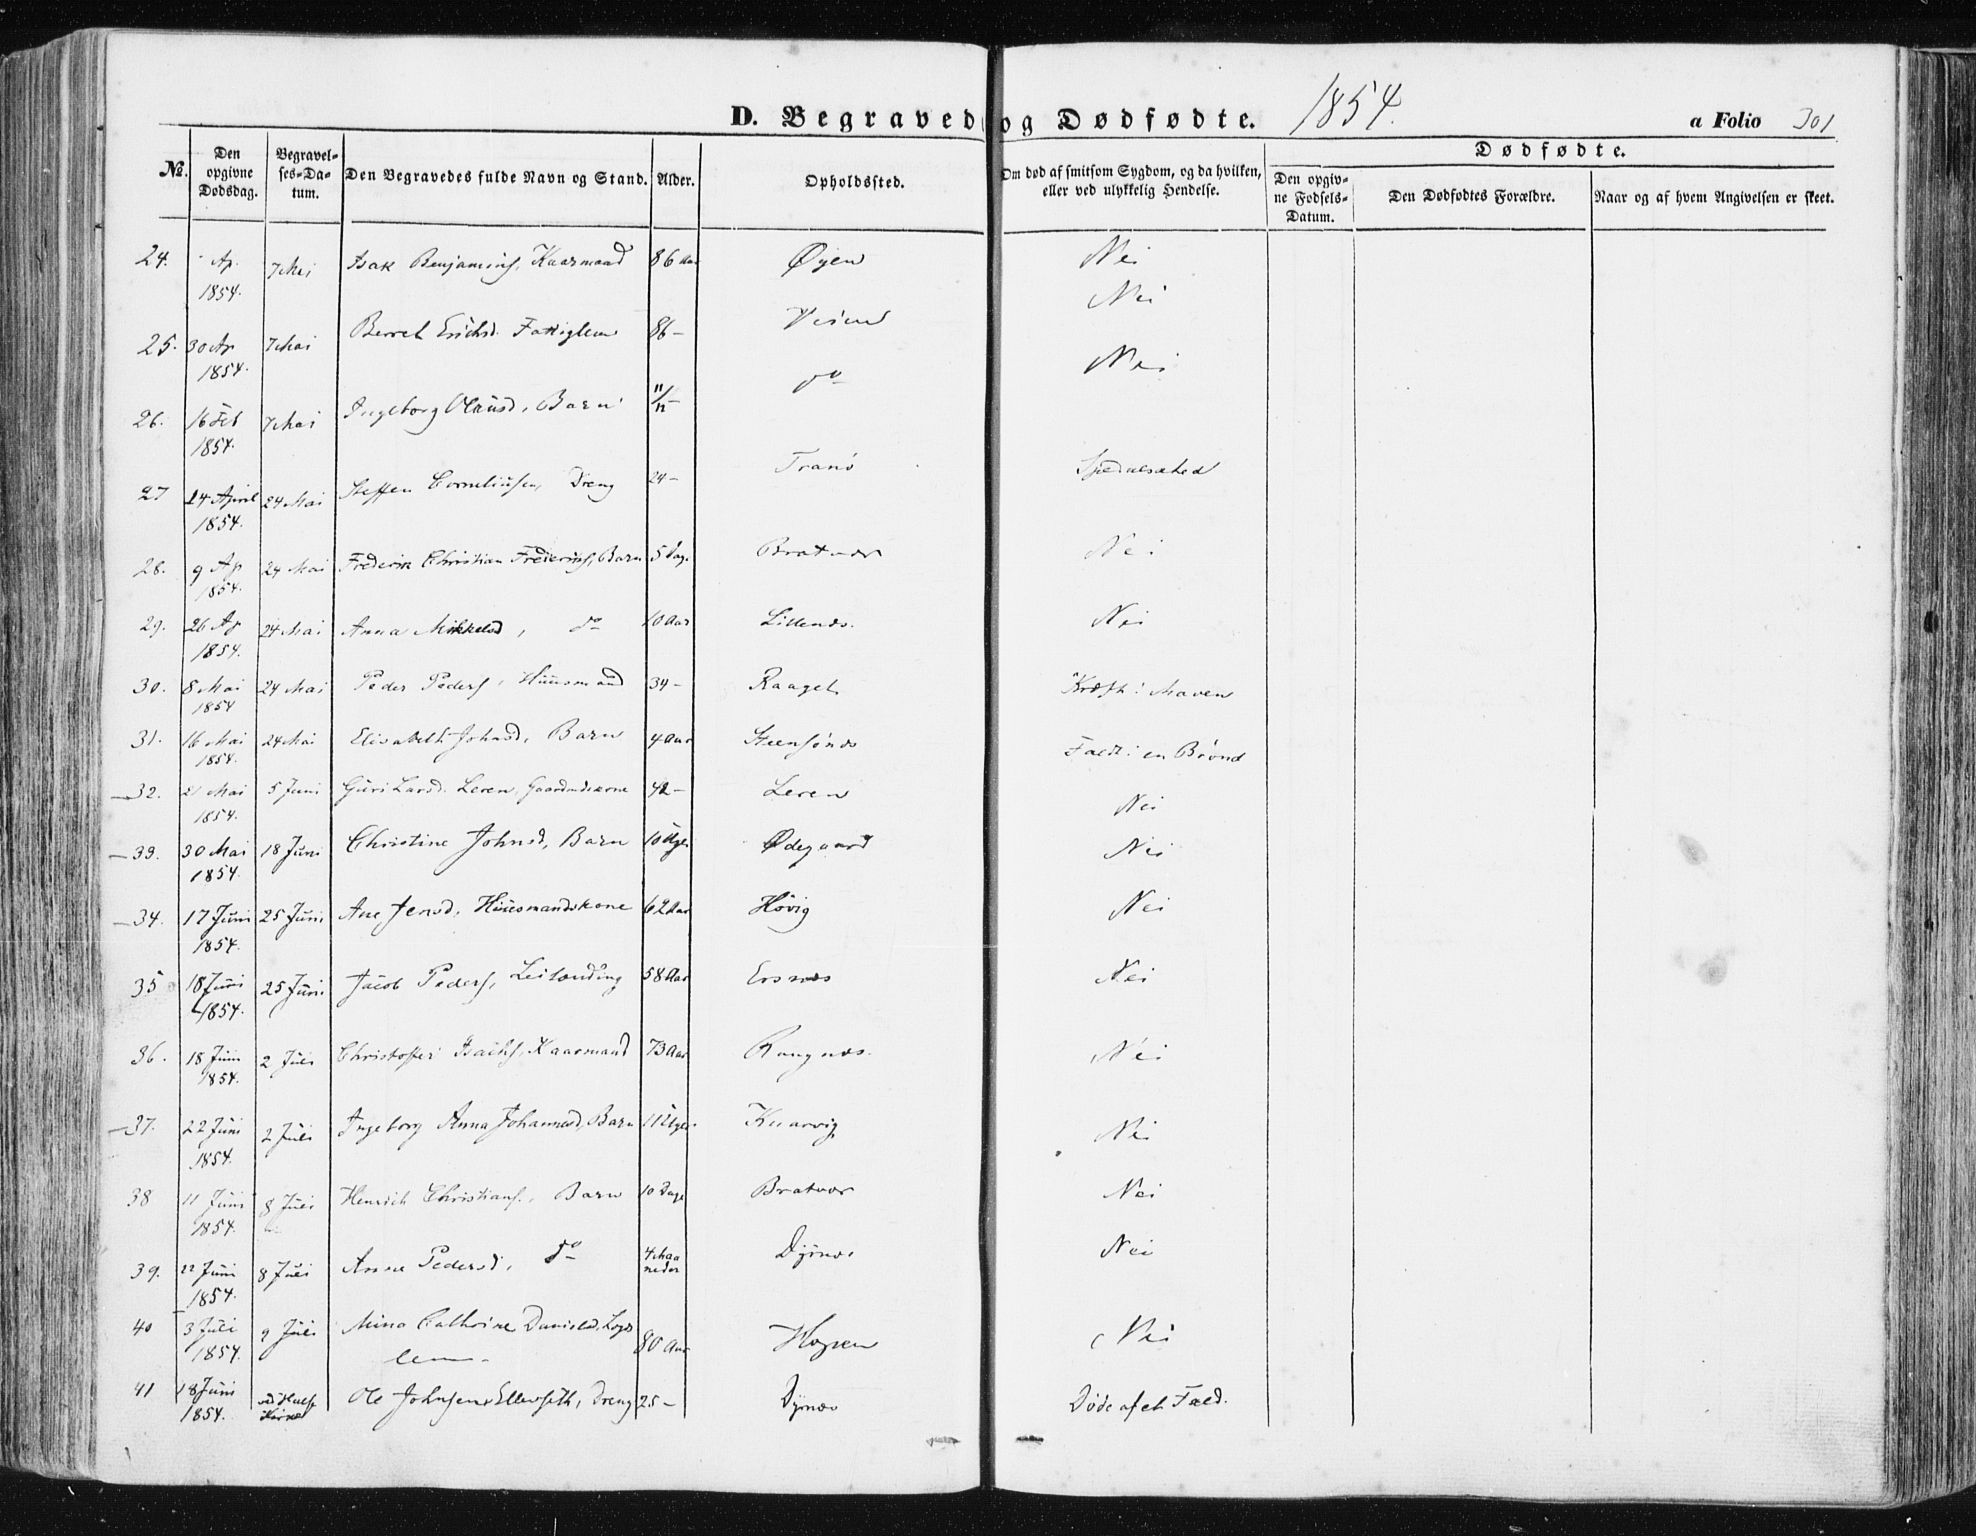 D. Begravede og Dødfødte. 1854.
a Folio 301
No.
Den opgivne Dødsdag.
Begravelses-Datum.
Den Begravedes fulde Navn og Stand.
Alder.
Opholdssted.
Om død af smitsom Sygdom, og da hvilken, eller ved ulykkelig Hendelse.
Dødfødte.
Den opgivne Fødsels-Datum.
Den Dødfødtes Forældre.
Naar og af hvem Angivelsen er skeet.
24. Ap. 1854. 7 Mai Isak Benjamins, Kaarmand 86 Aar Øyen Nei
25. 30 Ap 1854. 7 Mai Berret Erichsd. Fattiglem 86 – Nei
26. 16 Feb 1854. 7 Mai Ingeborg Olausd, Barn 11/12 – do Nei
27 14 April 1854. 24 Mai Steffen Corneliusen, Dreng 24 – Tranö Spedalskhed
28. 9 Ap 1854. 24 Mai Frederik Christian Frederiks, Barn 5 Dage Bratvær Nei
29. 26 Ap 1854. 24 Mai Anna Mikkelsd, do 10 Aar Nei
30. 8 Mai 1854 24 Mai Peder Peders, Huusmand 34 – Kræft i Maven
31. 16 Mai 1854. 24 Mai Elisabeth Johnsd, Barn 4 Aar Faldt i en Brönd
32. 21 Mai 1854. 5 Juni Guri Larsd. Leren, Gaardmdskone 42 – Leren Nei
33. 30 Mai 1854. 18 Juni Christine Johnsd, Barn 10 Uger Ødegaard Nei
34. 17 Juni 1854. 25 Juni Ane Jensd, Huusmandskone 62 Aar Hövig Nei
35 18 Juni 1854. 25 Juni Jacob Peders, Leilænding 58 Aar Ersnæs Nei
36. 18 Juni 1854. 2 Juli Christoffer Isachs, Kaarmand 73 Aar Rangnæs. Nei
37. 22 Juni 1854. 2 Juli Ingeborg Anna Johannesd, Barn 11 Uger Knarvig Nei
38 11 Juni 1854. 8 Juli Henrich Christians, Barn 10 Dage Bratvær Nei
39. 22 Juni 1854. 8 Juli Anne Pedersd, do 4 Maaneder Dyrnæs Nei
40 3 Juli 1854. 9 Juli Mina Cathrine Danielsd, Lægdslem – 80 Aar Hopen Nei
41 18 Juni 1854. ved Kirke Ole Johnsen Ellevseth, Dreng 25 – Dyrnæs Døde af et Fald.